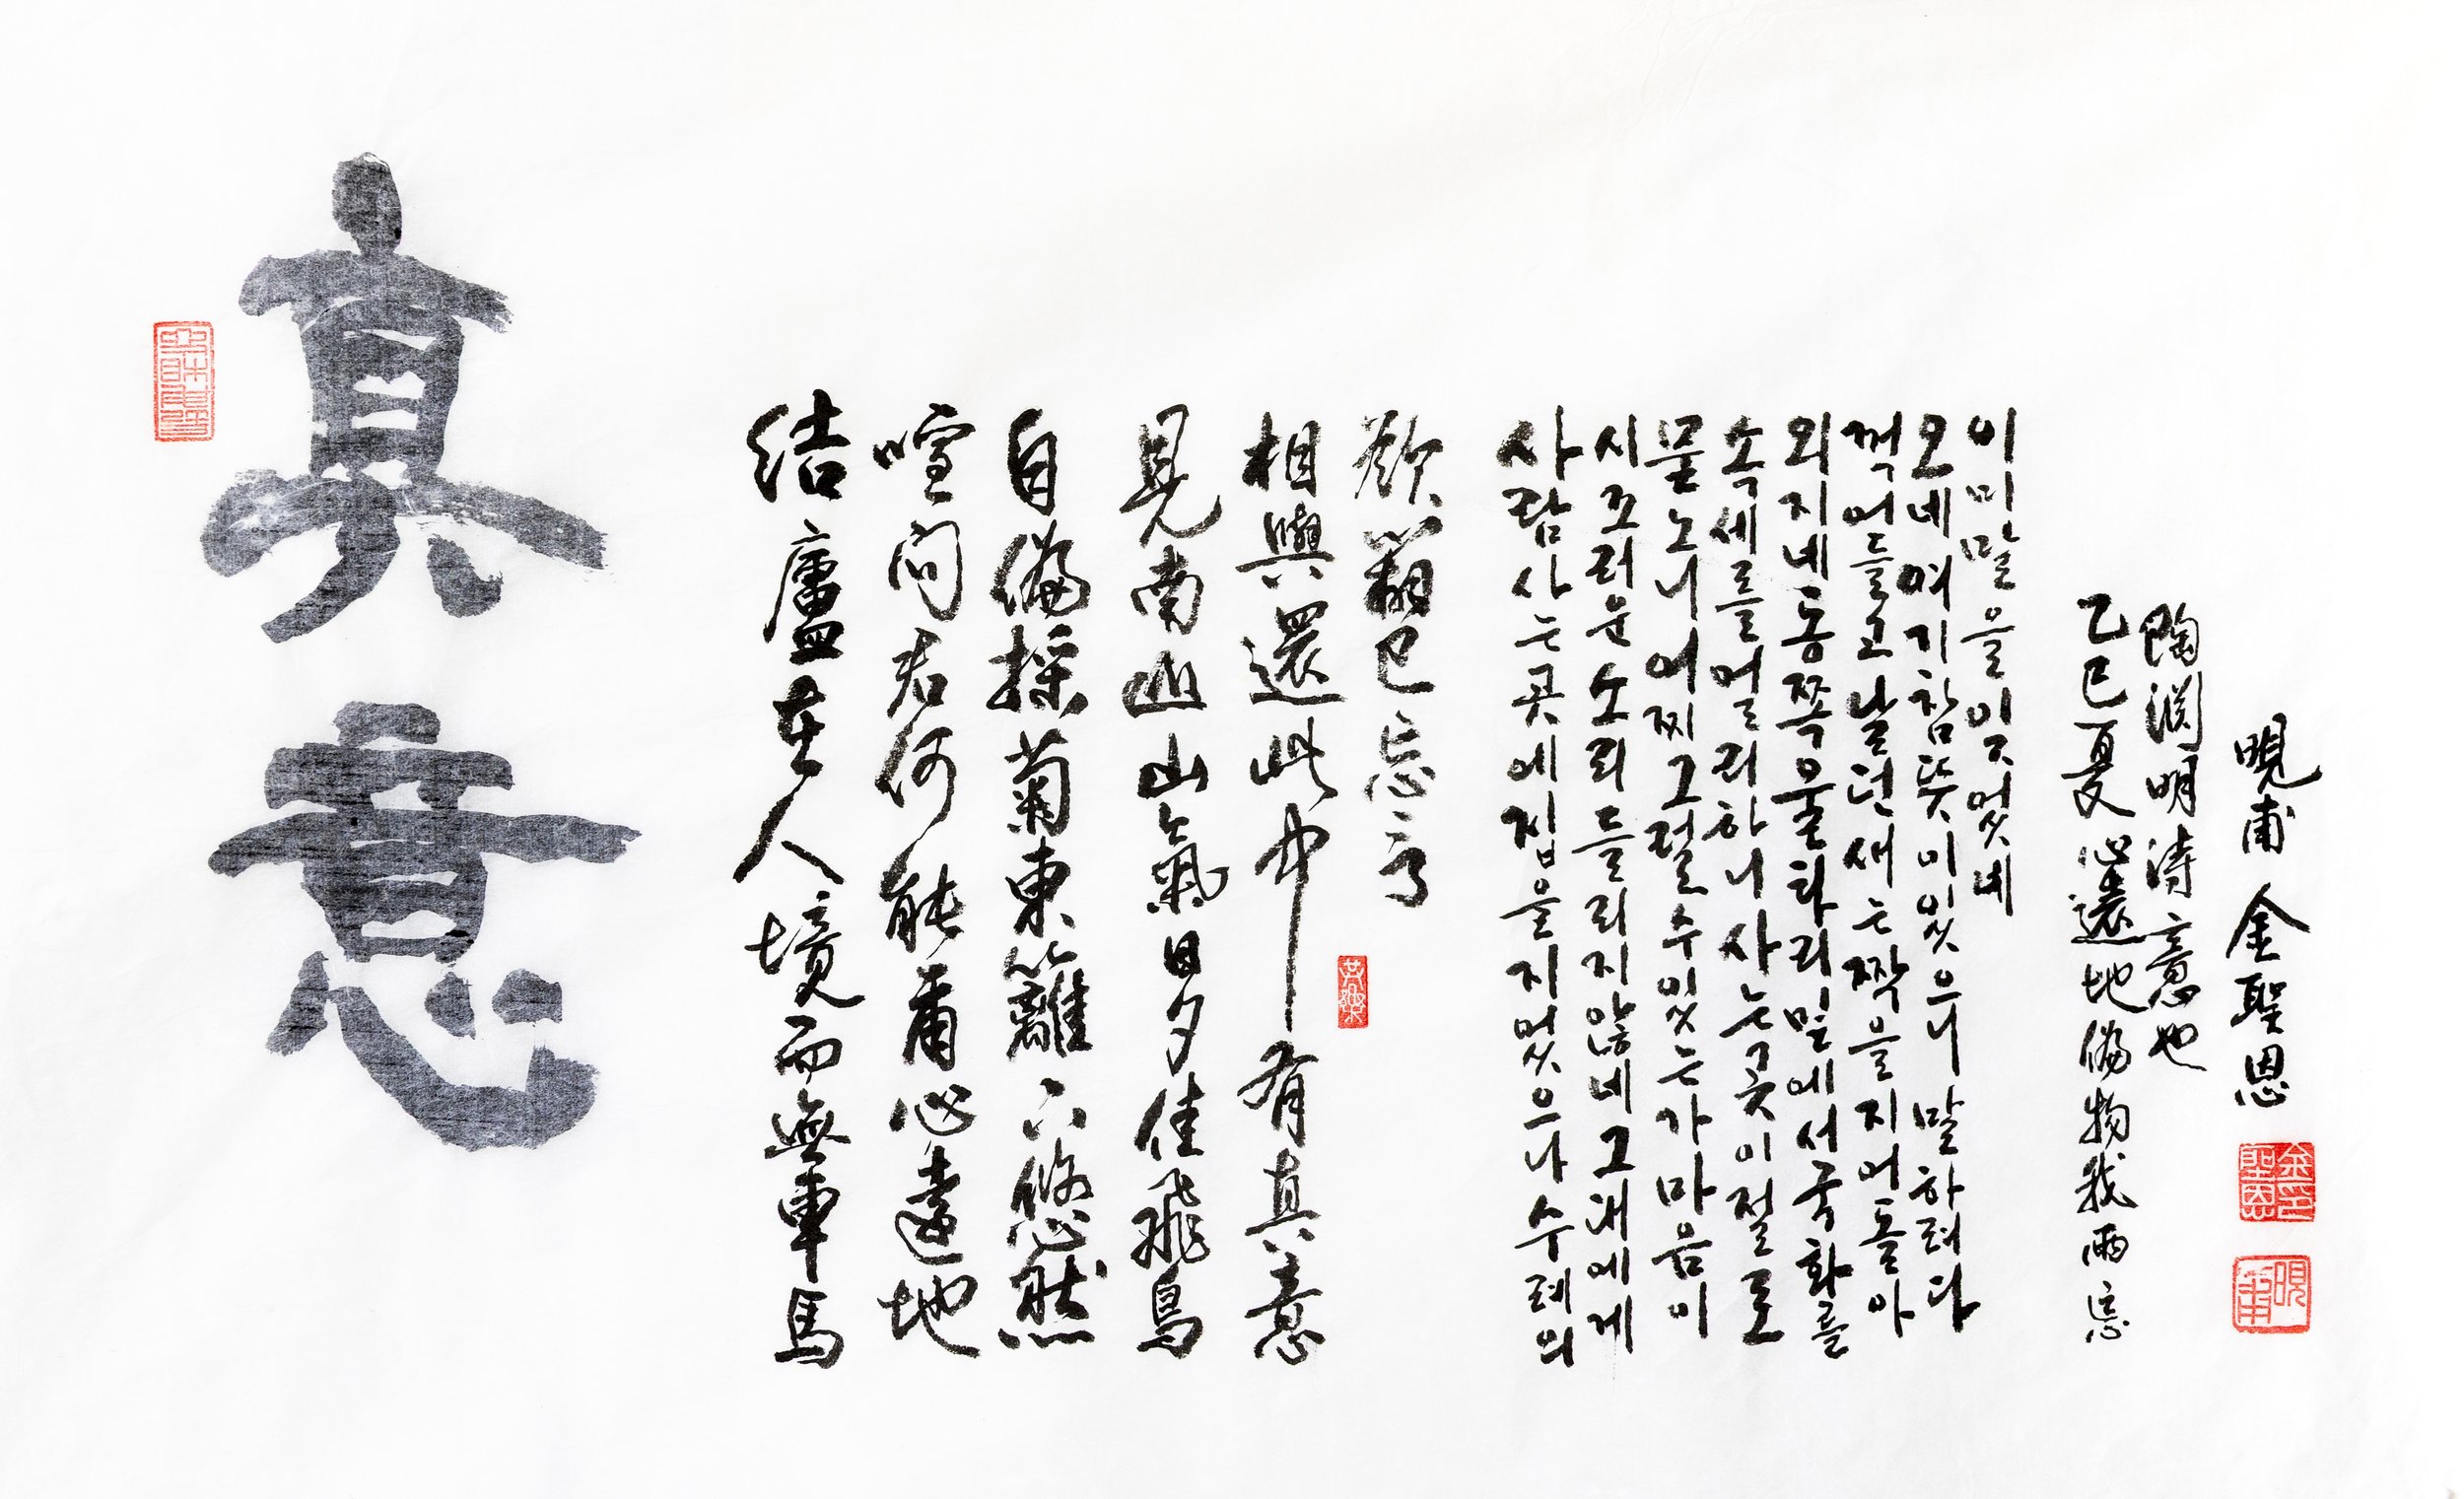 真意
結廬在人境而無車馬
喧問君何能爾心遠地
自偏採菊東籬下悠然
見南山山氣日夕佳飛鳥
相與還此中有真意
欲辯已忘言
사람사는곳에집을지었으나수레의
시끄러운소리들리지않네그대에게
물노니어찌그럴수있는가마음이
속세를멀리하니사는곳이절로
외지네동쪽울타리밑에서국화를
꺽어들고날던새는짝을지어돌아
오네여기참뜻이있으니말하려다
이미말을잊었네
乙巳夏心遠地偏物我兩忘
陶淵明詩意也
晛甫 金聖恩
金聖恩印
晛甫